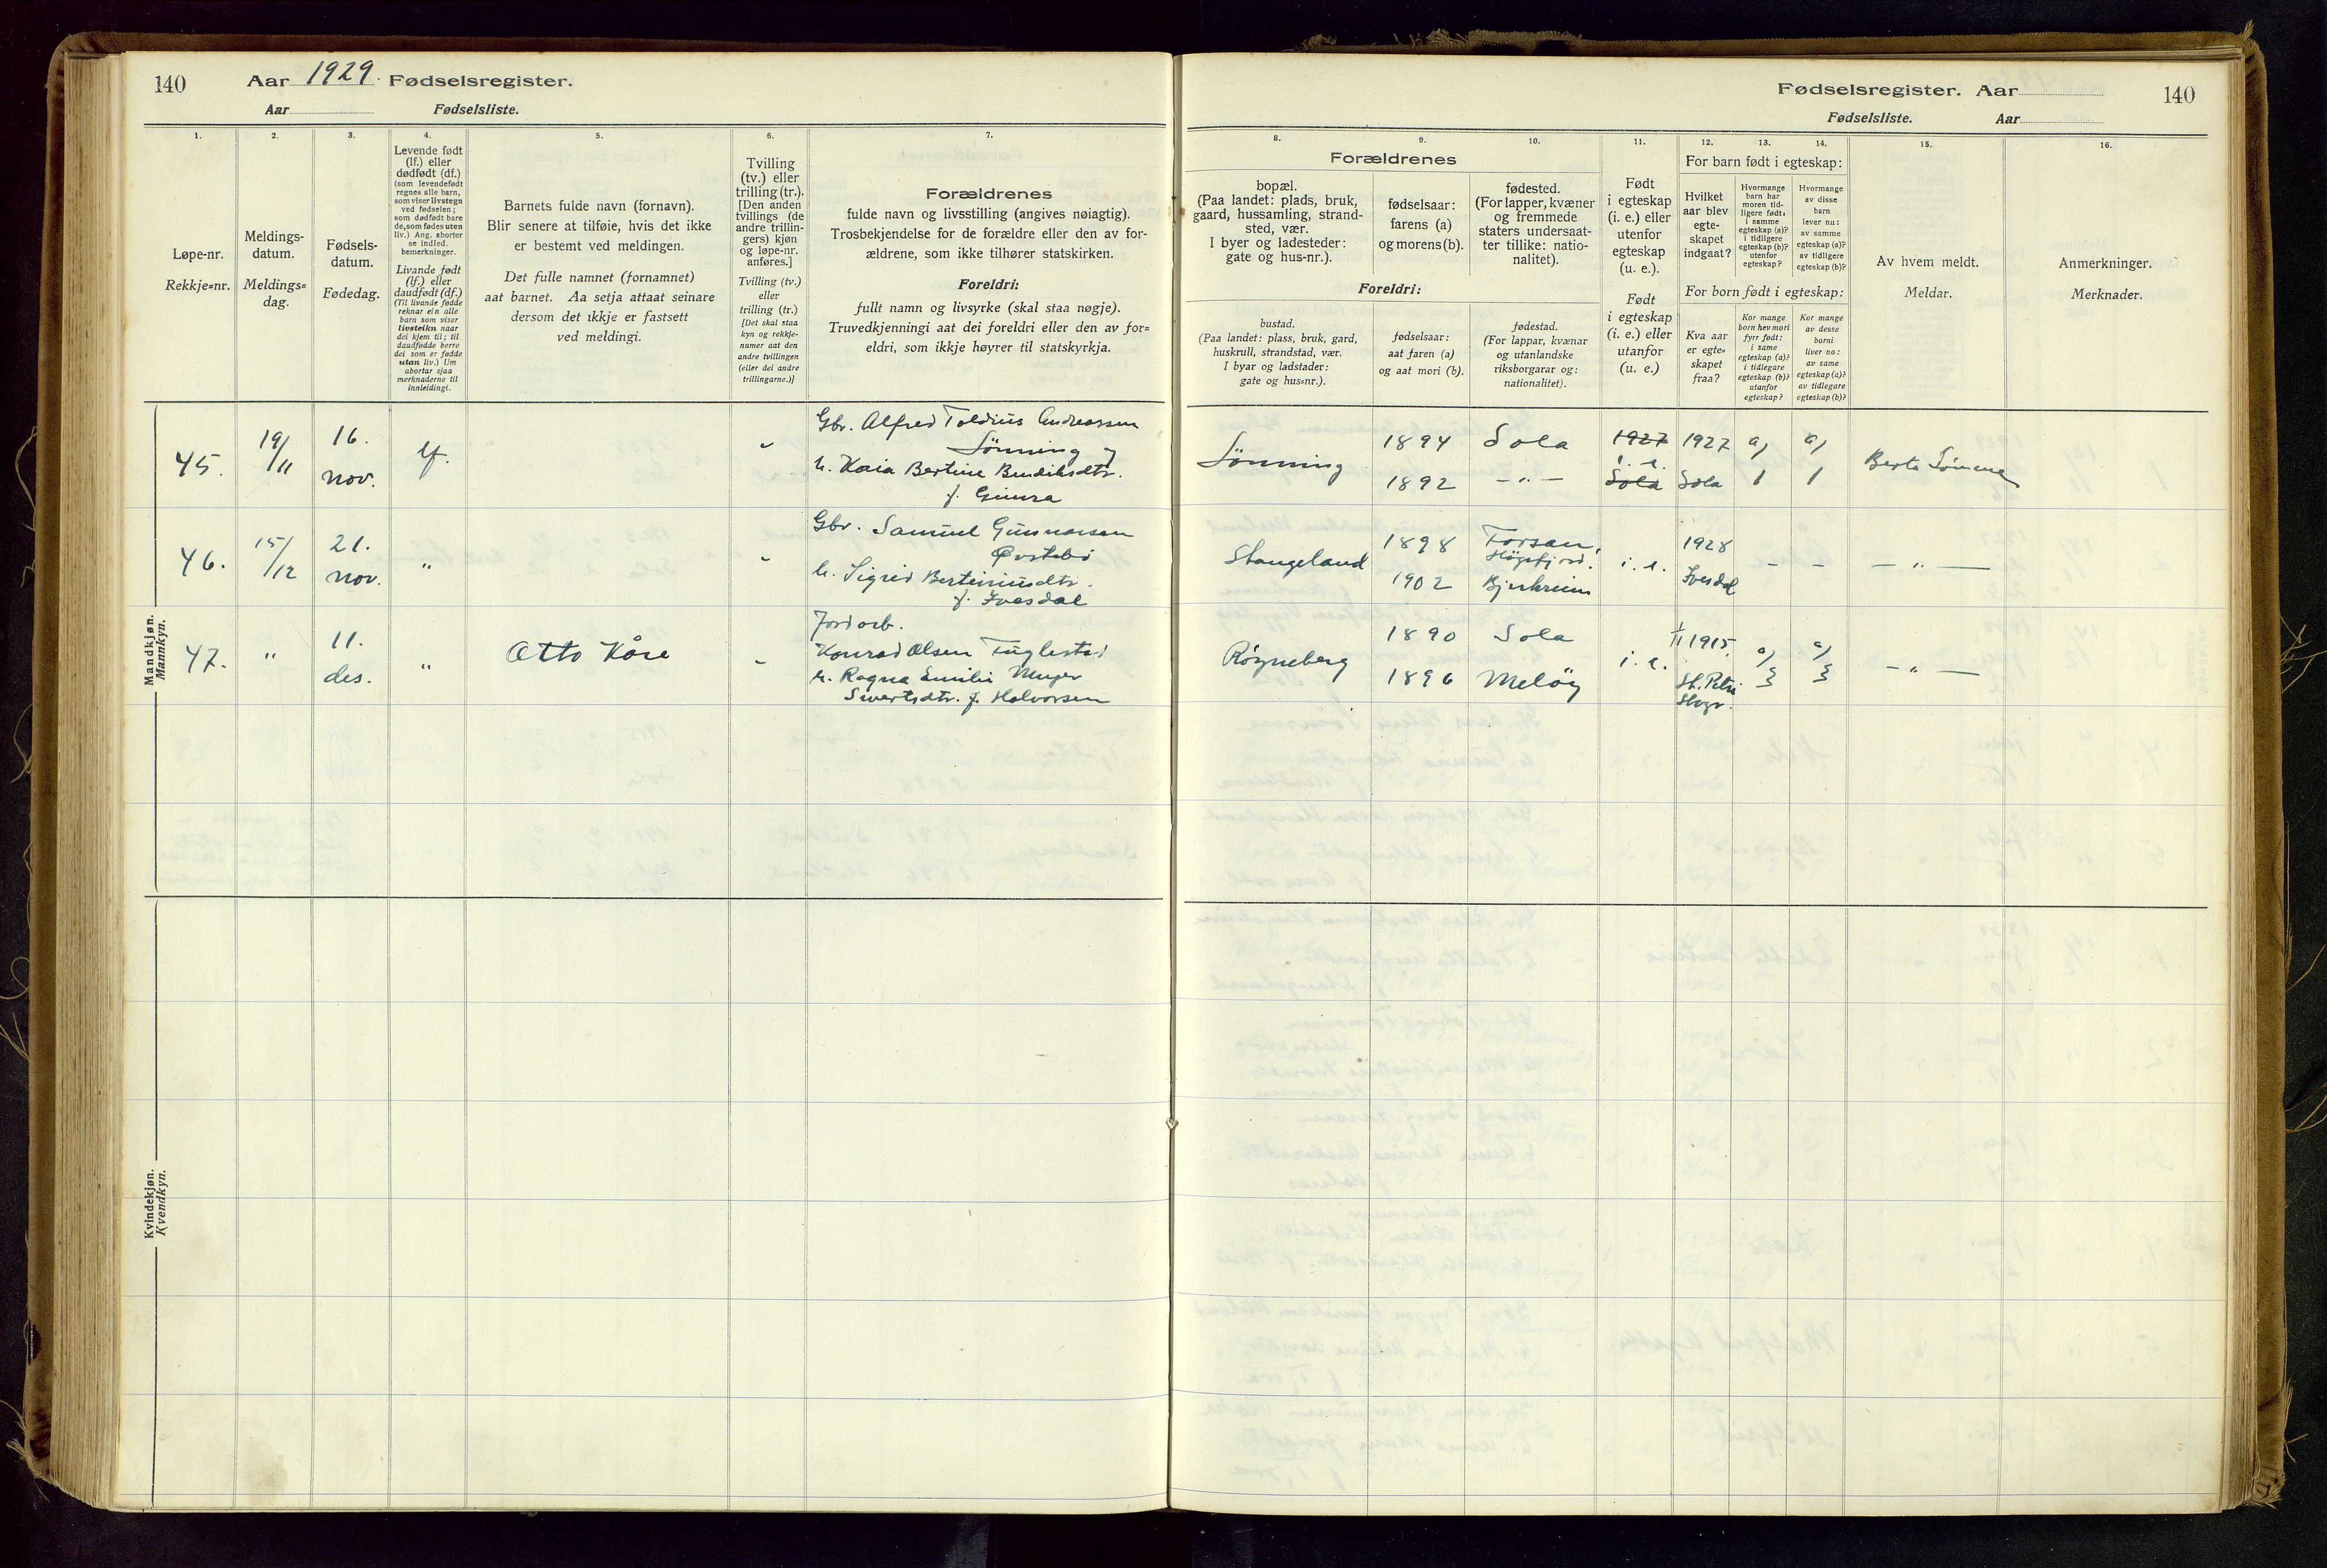 140
Aar 1929. Fødselsregister.
Aar Fødselsliste.
1.
Løpe-nr.
Rekkje=nr.
2.
Meldings-
datum.
Meldings=
dag.
3.
Fødsels-
datum.
Fødedag.
4.
Levende født
(lf.) eller
dødfødt (df.)
(som levendefødt
regnes alle barn,
som viser livstegn
ved fødselen;
som dødfødt bare
de, som fødes uten
liv.) Ang. aborter
se indled.
bemerkninger.
Livande født
(lf.) eller
daudfødt (df.)
(Til livande fødde
reknar ein alle
barn som viser
livsteikn naar
dei kjem til; til
daudfødde berre
dei som er fødde
utan liv.) Um
abortar sjaa
merknaderne til
innleidingi.
5.
Barnets fulde navn (fornavn).
Blir senere at tilføie, hvis det ikke
er bestemt ved meldingen.
Det fulle namnet (fornamnet)
aat barnet. Aa setja attaat seinare
dersom det ikkje er fastsett
ved meldingi.
6.
Tvilling
(tv.) eller
trilling (tr.).
[Den anden
tvillings (de
andre trillin-
gers) kjøn
og løpe-nr.
anføres.]
Tvilling (tv.)
eller
trilling (tr.)
[Det skal staa
kyn og rekkje-
numer aat den
andre tvillingen
(eller dei andre
trillingarne.)]
7.
Forældrenes
fulde navn og livsstilling (angives nøiagtig).
Trosbekjendelse for de forældre eller den av for-
ældrene, som ikke tilhører statskirken.
Foreldri:
fullt namn og livsyrke (skal staa nøgje).
Truvedkjenningi aat dei foreldri eller den av for=
eldri, som ikkje høyrer til statskyrkja.
Mandkjøn.
Mannkyn.
45.
19/11
16.
nov.
lf.
Gbr. Alfred Toldius Andreassen
Sönning og
h. Kaia Bertine Bendiksdtr.
f. Gimra
46.
15/12
21.
nov.
"
Gbr. Samuel Gunnarsen
Övstebö
h. Sigrid Berteniusdtr.
f. Ivesdal
47.
"
11.
des.
"
Otto Kåre
Jordarb.
Konrad Olsen Fuglestad
h. Ragna Emilie Meyer
Sivertsdtr. f. Halvorsen
Kvindekjøn.
Kvendkyn.
Fødselsregister. Aar
140
Fødselsliste. Aar
8.
Forældrenes
bopæl.
(Paa landet: plads, bruk,
gaard, hussamling, strand-
sted, vær.
I byer og ladesteder:
gate og hus-nr.).
Foreldri:
bustad.
(Paa landet: plass, bruk, gard,
huskrull, strandstad, vær.
I byar og ladstader:
gate og hus=nr.).
9.
fødselsaar:
farens (a)
og morens (b).
fødselsaar:
aat faren (a)
og aat mori (b).
10.
fødested.
(For lapper, kvæner
og fremmede
staters undersaat-
ter tillike: natio-
nalitet).
fødestad.
(For lappar, kvænar
og utanlandske
riksborgarar og:
nationalitet).
11.
Født
i egteskap
(i. e.) eller
utenfor
egteskap
(u. e.).
Født
i egteskap
(i. e.) eller
utanfor
(u. e.)
12. 13. 14.
For barn født i egteskap:
Hvilket
aar blev
egte-
skapet
indgaat?
Hvormange
barn har
moren tid-
ligere født:
i samme
egteskap (a)?
i tidligere
egteskap (b)?
utenfor
egteskap?
Hvormange
av disse
barn
lever nu:
av samme
egteskap (a)?
av tidligere
egteskap (b)?
For born født i egteskap:
Kva aar
er egte=
skapet
fraa?
Kor mange
born hev mori
fyrr født:
i same
egteskap (a)?
i tidlegare
egteskap (b)?
utanfor
egteskap?
Kor mange
av desse
borni
liver no:
av same
egteskap (a)?
av tidlegare
egteskap (b)?
15.
Av hvem meldt.
Meldar.
16.
Anmerkninger.
Merknader.
Sönning
1894
1892
Sola
- " -
1927
i. e.
Sola
1927
Sola
a)
1
a)
1
Stangeland
1898
1902
Forsan,
Högsfjord.
Bjerkreim
i. e.
1928
Ivesdal
-
-
- " -
Röyneberg
1890
1896
Sola
Melöy
i. e.
1/11 1915
St. Petri
Stvgr.
a)
3
a)
3
- " -